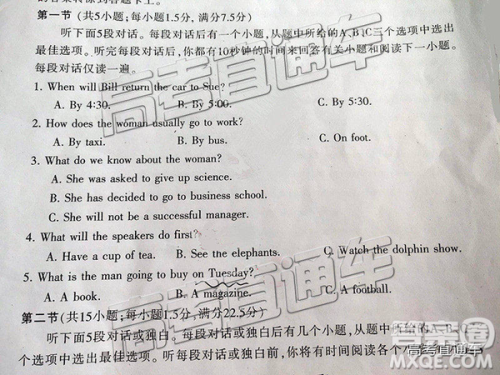 第一节 (共5小题;每小题1.5分, 满分7.5分)
听下面5段对话。每段对话后有一个小题, 从题中所给的A、B、C三个选项中选出
最佳选项。听完每段对话后, 你都有10秒钟的时间来回答有关小题和阅读下一小题。
每段对话仅读一遍。
1. When will Bill return the car to Sue?
A. By 4:30. B. By 5:00. C. By 5:30.
2. How does the woman usually go to work?
A. By taxi. B. By bus. C. On foot.
3. What do we know about the woman?
A. She was asked to give up science.
B. She has decided to go to business school.
C. She will not be a successful manager.
4. What will the speakers do first?
A. Have a cup of tea. B. See the elephants. C. Watch the dolphin show.
5. What is the man going to buy on Tuesday?
A. A book. B. A magazine. C. A football.
第二节 (共15小题;每小题1.5分, 满分22.5分)
听下面5段对话或独白。每段对话或独白后有几个小题, 从题中
个选项中选出最佳选项。听每段对话或独白前, 你将有时间阅读各个
高考直通车
高考直通车
高考直通车